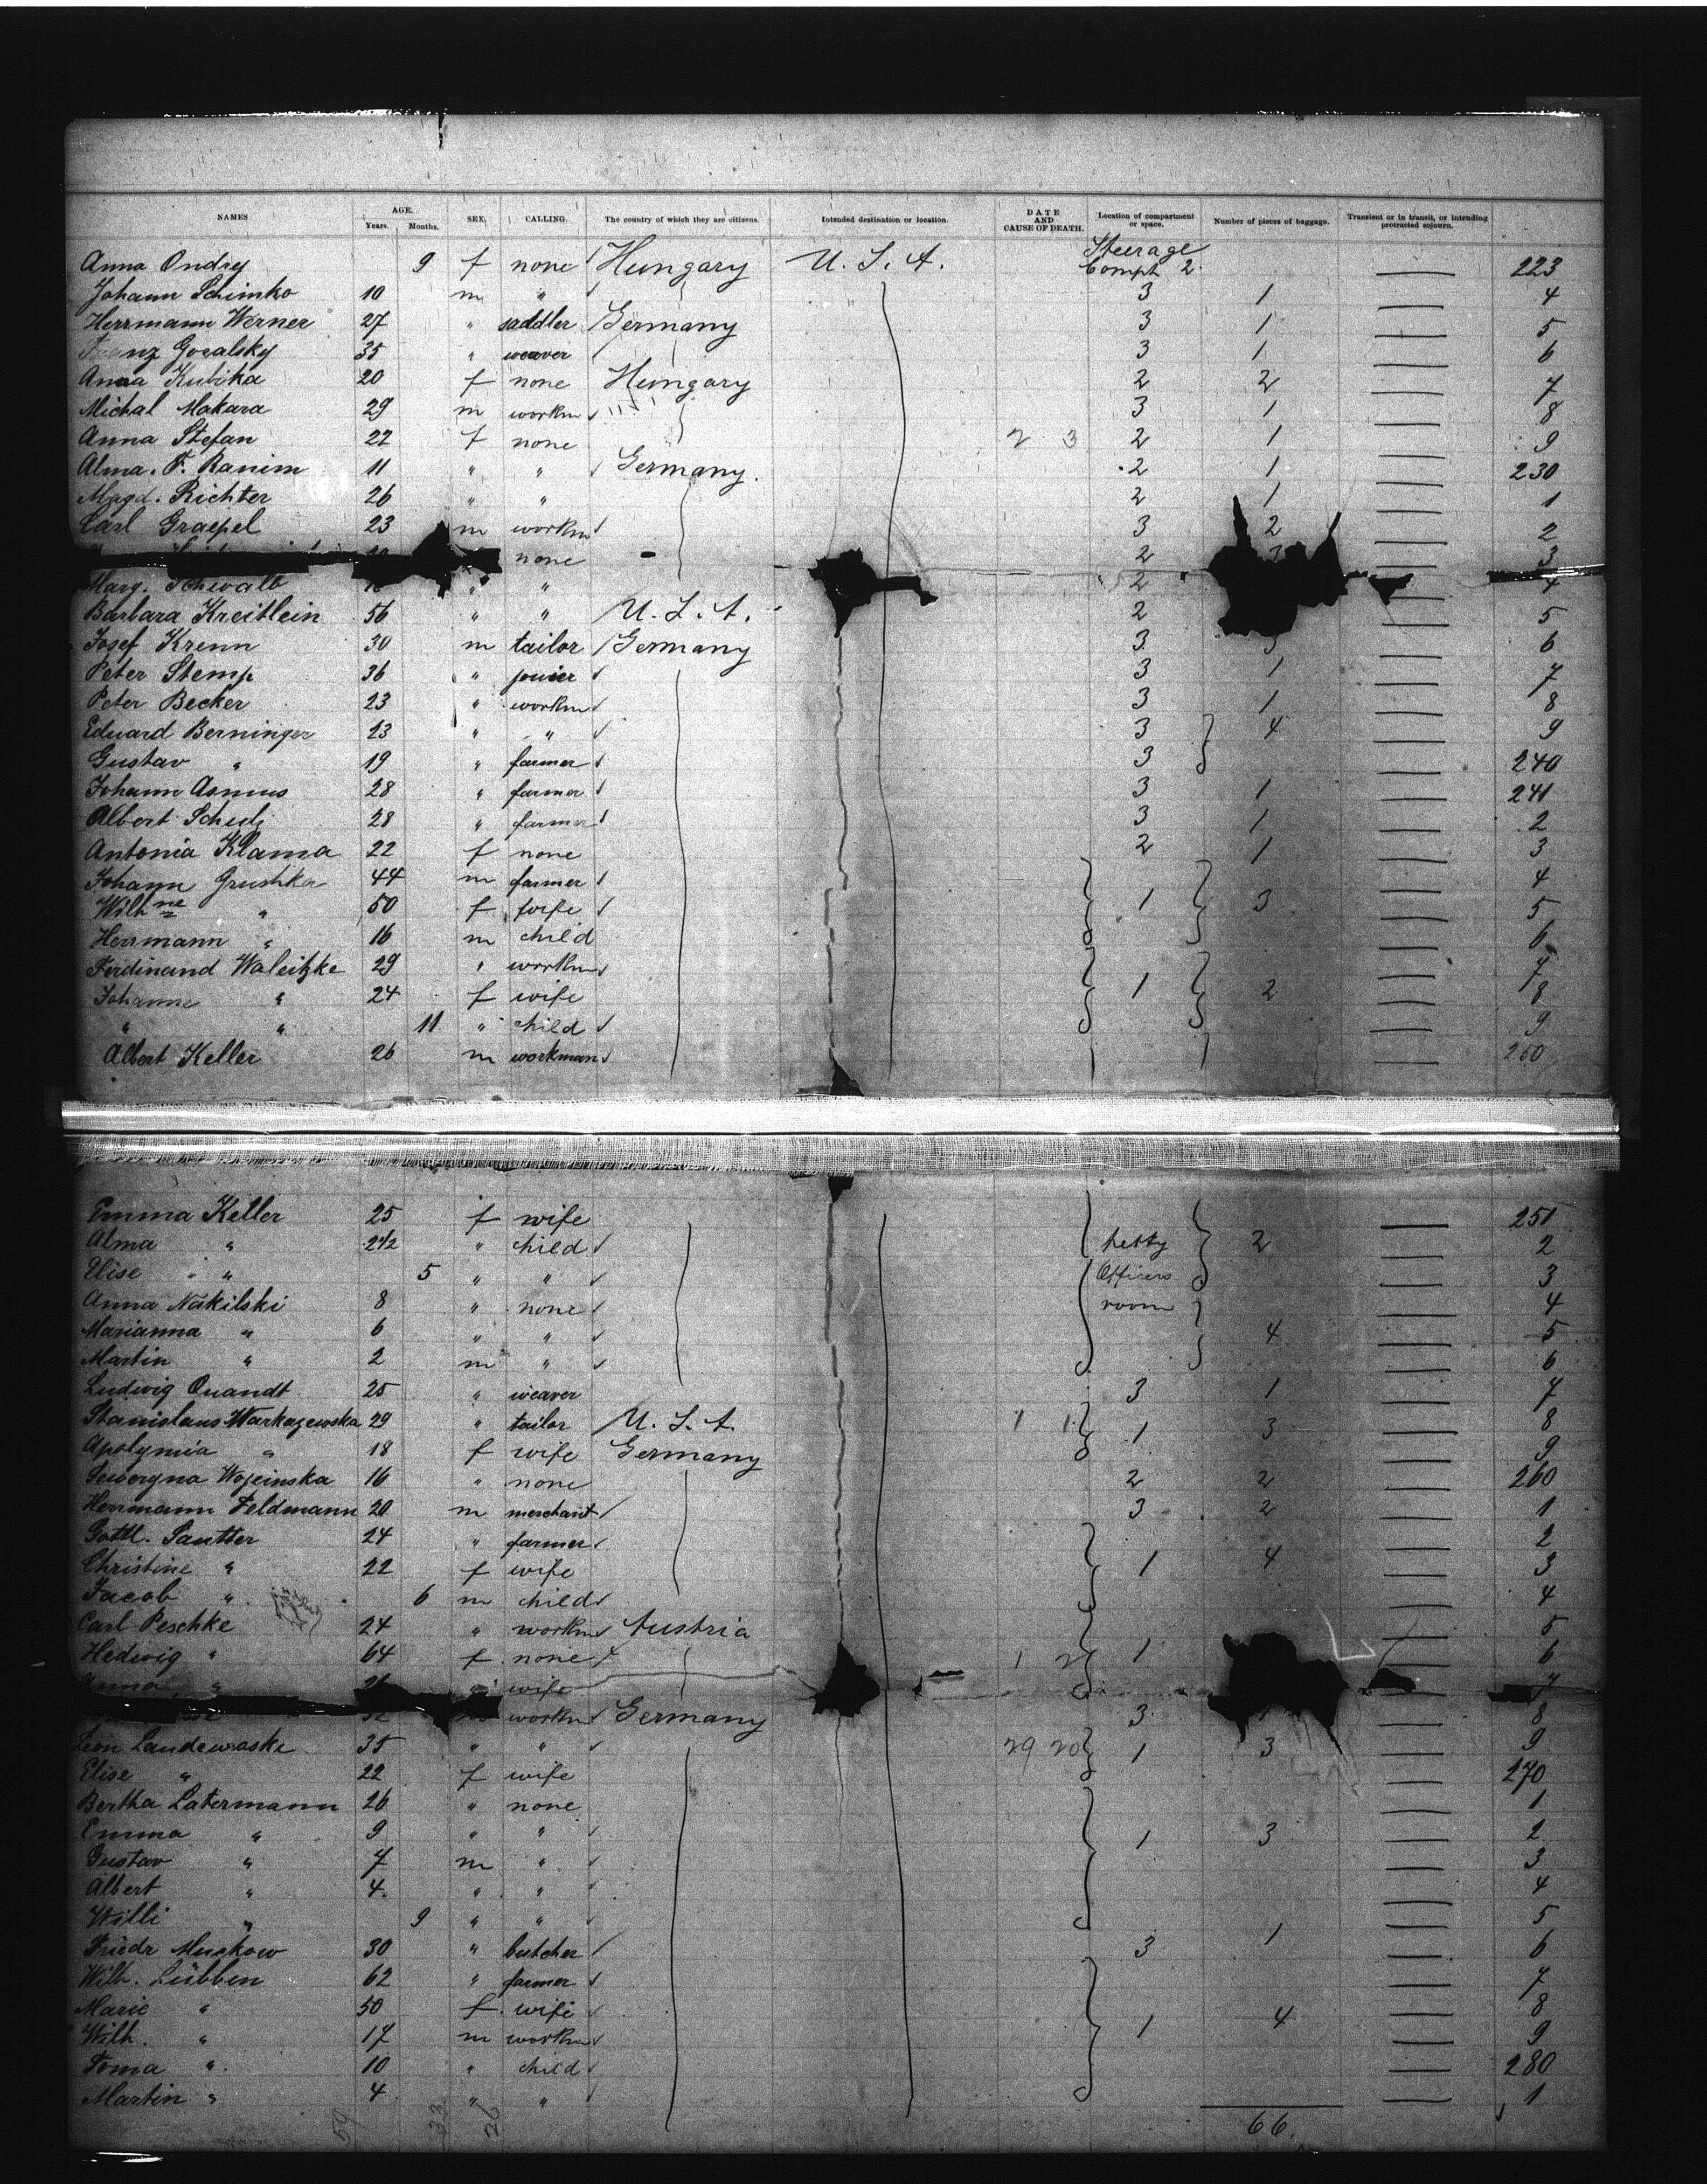 NAMES AGE. Years. Months. SEX. CALLING. The country of which they are citizens. Intended destination or location. DATE AND CAUSE OF DEATH. Location of compartment or space. Number of pieces of baggage. Transient or in transit, or intending protracted sojourn.
Anna Ondrej 9 f none Hungary U. S. A. Steerage Compt 2. — 223
Johann Schimko 10 m " 3 1 — 4
Herrmann Werner 27 " saddler Germany 3 1 — 5
Franz Goralsky 35 " weaver 3 1 — 6
Anna Kubika 20 f none Hungary 2 2 — 7
Michal Makara 29 m workm 3 1 — 8
Anna Stefan 22 f none 2 3 2 1 — 9
Alma. F. Ranim 11 " " Germany. 2 1 — 230
Magd. Richter 26 " " 2 1 — 1
Carl Graepel 23 m workm 3 2 — 2
none 2 3 — 3
Marg. Schwalb " " 2 — 4
Barbara Kreitlein 56 " " U. S. A. 2 — 5
Josef Krenn 30 m tailor Germany 3 — 6
Peter Stemp 36 " joiner 3 1 — 7
Peter Becker 23 " workm 3 1 — 8
Eduard Berninger 23 " " 3 4 — 9
Gustav " 19 " farmer 3 — 240
Johann Asmus 28 " farmer 3 1 — 241
Albert 28 " farmer 3 1 — 2
Antonia Klama 22 f none 2 1 — 3
Johann Grushka 44 m farmer — 4
Wilhne " 50 f wife 1 3 — 5
Herrmann " 16 m child — 6
Ferdinand Waleitzke 29 " workm — 7
Johanne " 24 f wife 1 2 — 8
" " 11 " child — 9
Albert Keller 26 m workman — 250
Emma Keller 25 f wife — 251
Alma " 2 1/2 " child petty 2 — 2
Elise " 5 " " Officers — 3
Anna Nakilski 8 " none room — 4
Marianna " 6 " " 4 — 5
Martin " 2 m " — 6
Ludwig Quandt 25 " weaver 3 1 — 7
Stanislaus Warkazewska 29 " tailor U. S. A. 1 1 1 3 — 8
Apolynia " 18 f wife Germany — 9
Wojcinska 16 " none 2 2 — 260
Herrmann Feldmann 20 m merchant 3 2 — 1
Gottl. Sautter 24 " farmer — 2
Christine " 22 f wife 1 4 — 3
Jacob " 6 m child — 4
Carl Peschke 24 " workm Austria — 5
Hedwig " 64 f none 1 2 1 — 6
Anna " wife — 7
32 workm Germany 3 — 8
Leon Landewaske 35 " " 29 20 1 3 — 9
Elise " 22 f wife — 270
Bertha Latermann 26 " none — 1
Emma " 9 " " 1 3 — 2
Gustav " 7 m " — 3
Albert " 4 " " — 4
Willi " 9 " " — 5
Friedr Muskow 30 " butcher 3 1 — 6
Wilh. Lübben 62 " farmer — 7
Marie " 50 f wife — 8
Wilh. " 17 m workm 1 4 — 9
Toma " 10 " child — 280
Martin " 4 " " — 1
59 33 26 66.